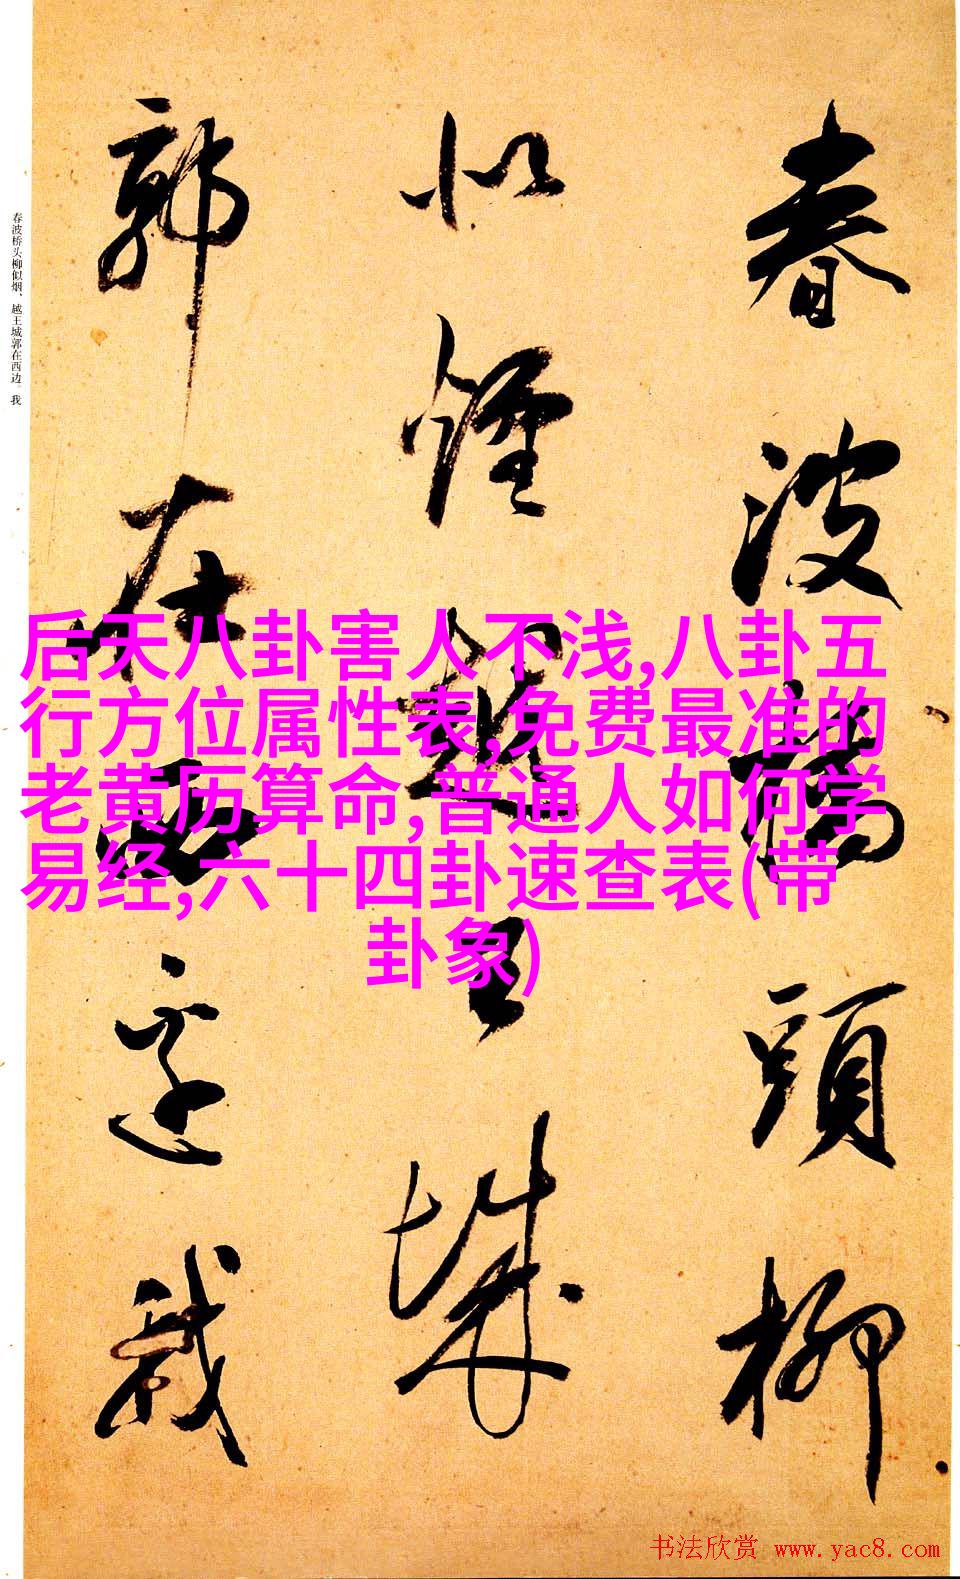 春波橋頭柳
似煙越王城
郭在西邊我
春波桥头柳似烟、越王城郭在西边。我
后天八卦害人不浅,八卦五
行方位属性表,免费最准的
老黄历算命,普通人如何学
易经,六十四卦速查表(带
卦象)
书法欣赏 www.yac8.com